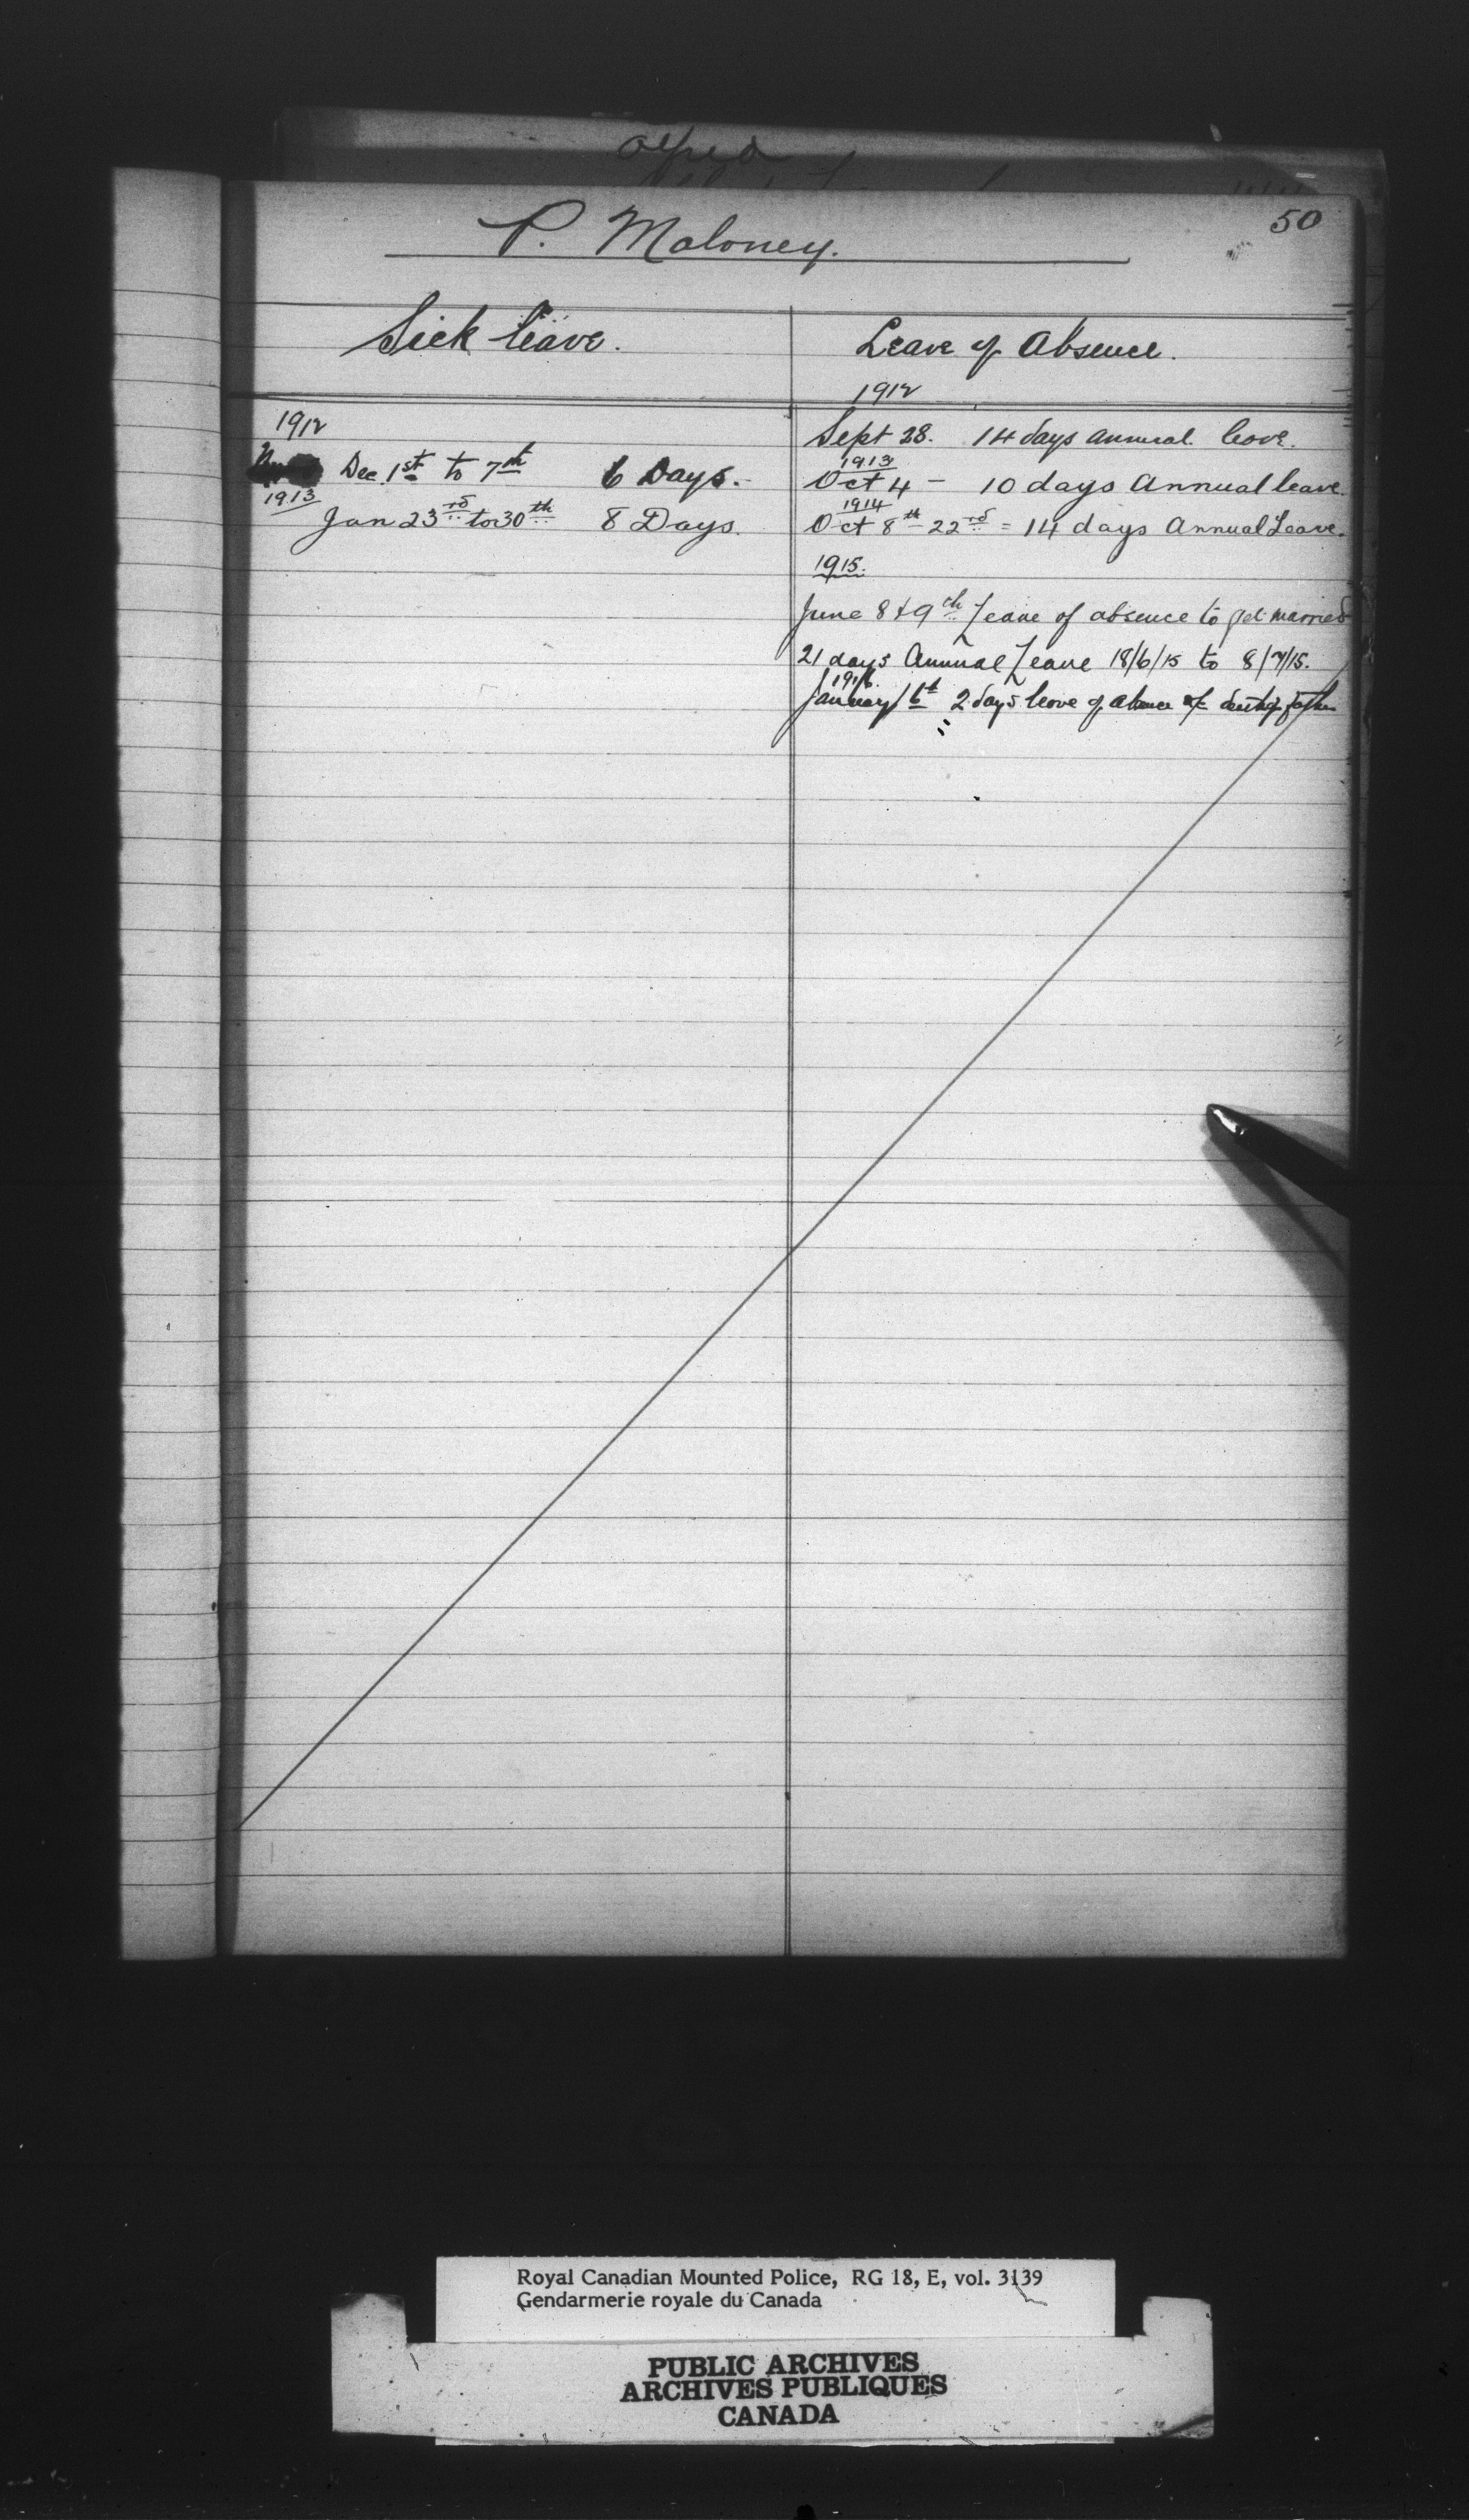 50
P. Maloney.
Sick leave.
Leave of Absence.
1912
Dec. 1st to 7th 6 Days.
1913
Jan 23rd to 30th 8 Days.
1912
Sept 28. 14 days annual leave.
1913
Oct 4 - 10 days Annual leave.
1914
Oct 8th - 22nd = 14 days Annual Leave.
1915.
June 8 & 9th Leave of absence to get married
21 days Annual Leave 18/6/15 to 8/7/15.
1916.
January 6th 2 days leave of absence death of father
Royal Canadian Mounted Police, RG 18, E, vol. 3139
Gendarmerie royale du Canada
PUBLIC ARCHIVES
ARCHIVES PUBLIQUES
CANADA